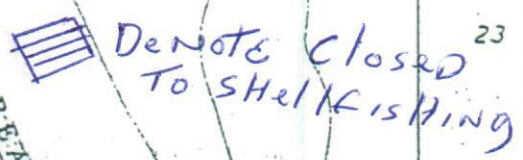 DeNOTE Closed 23
To SHellfisHiNg